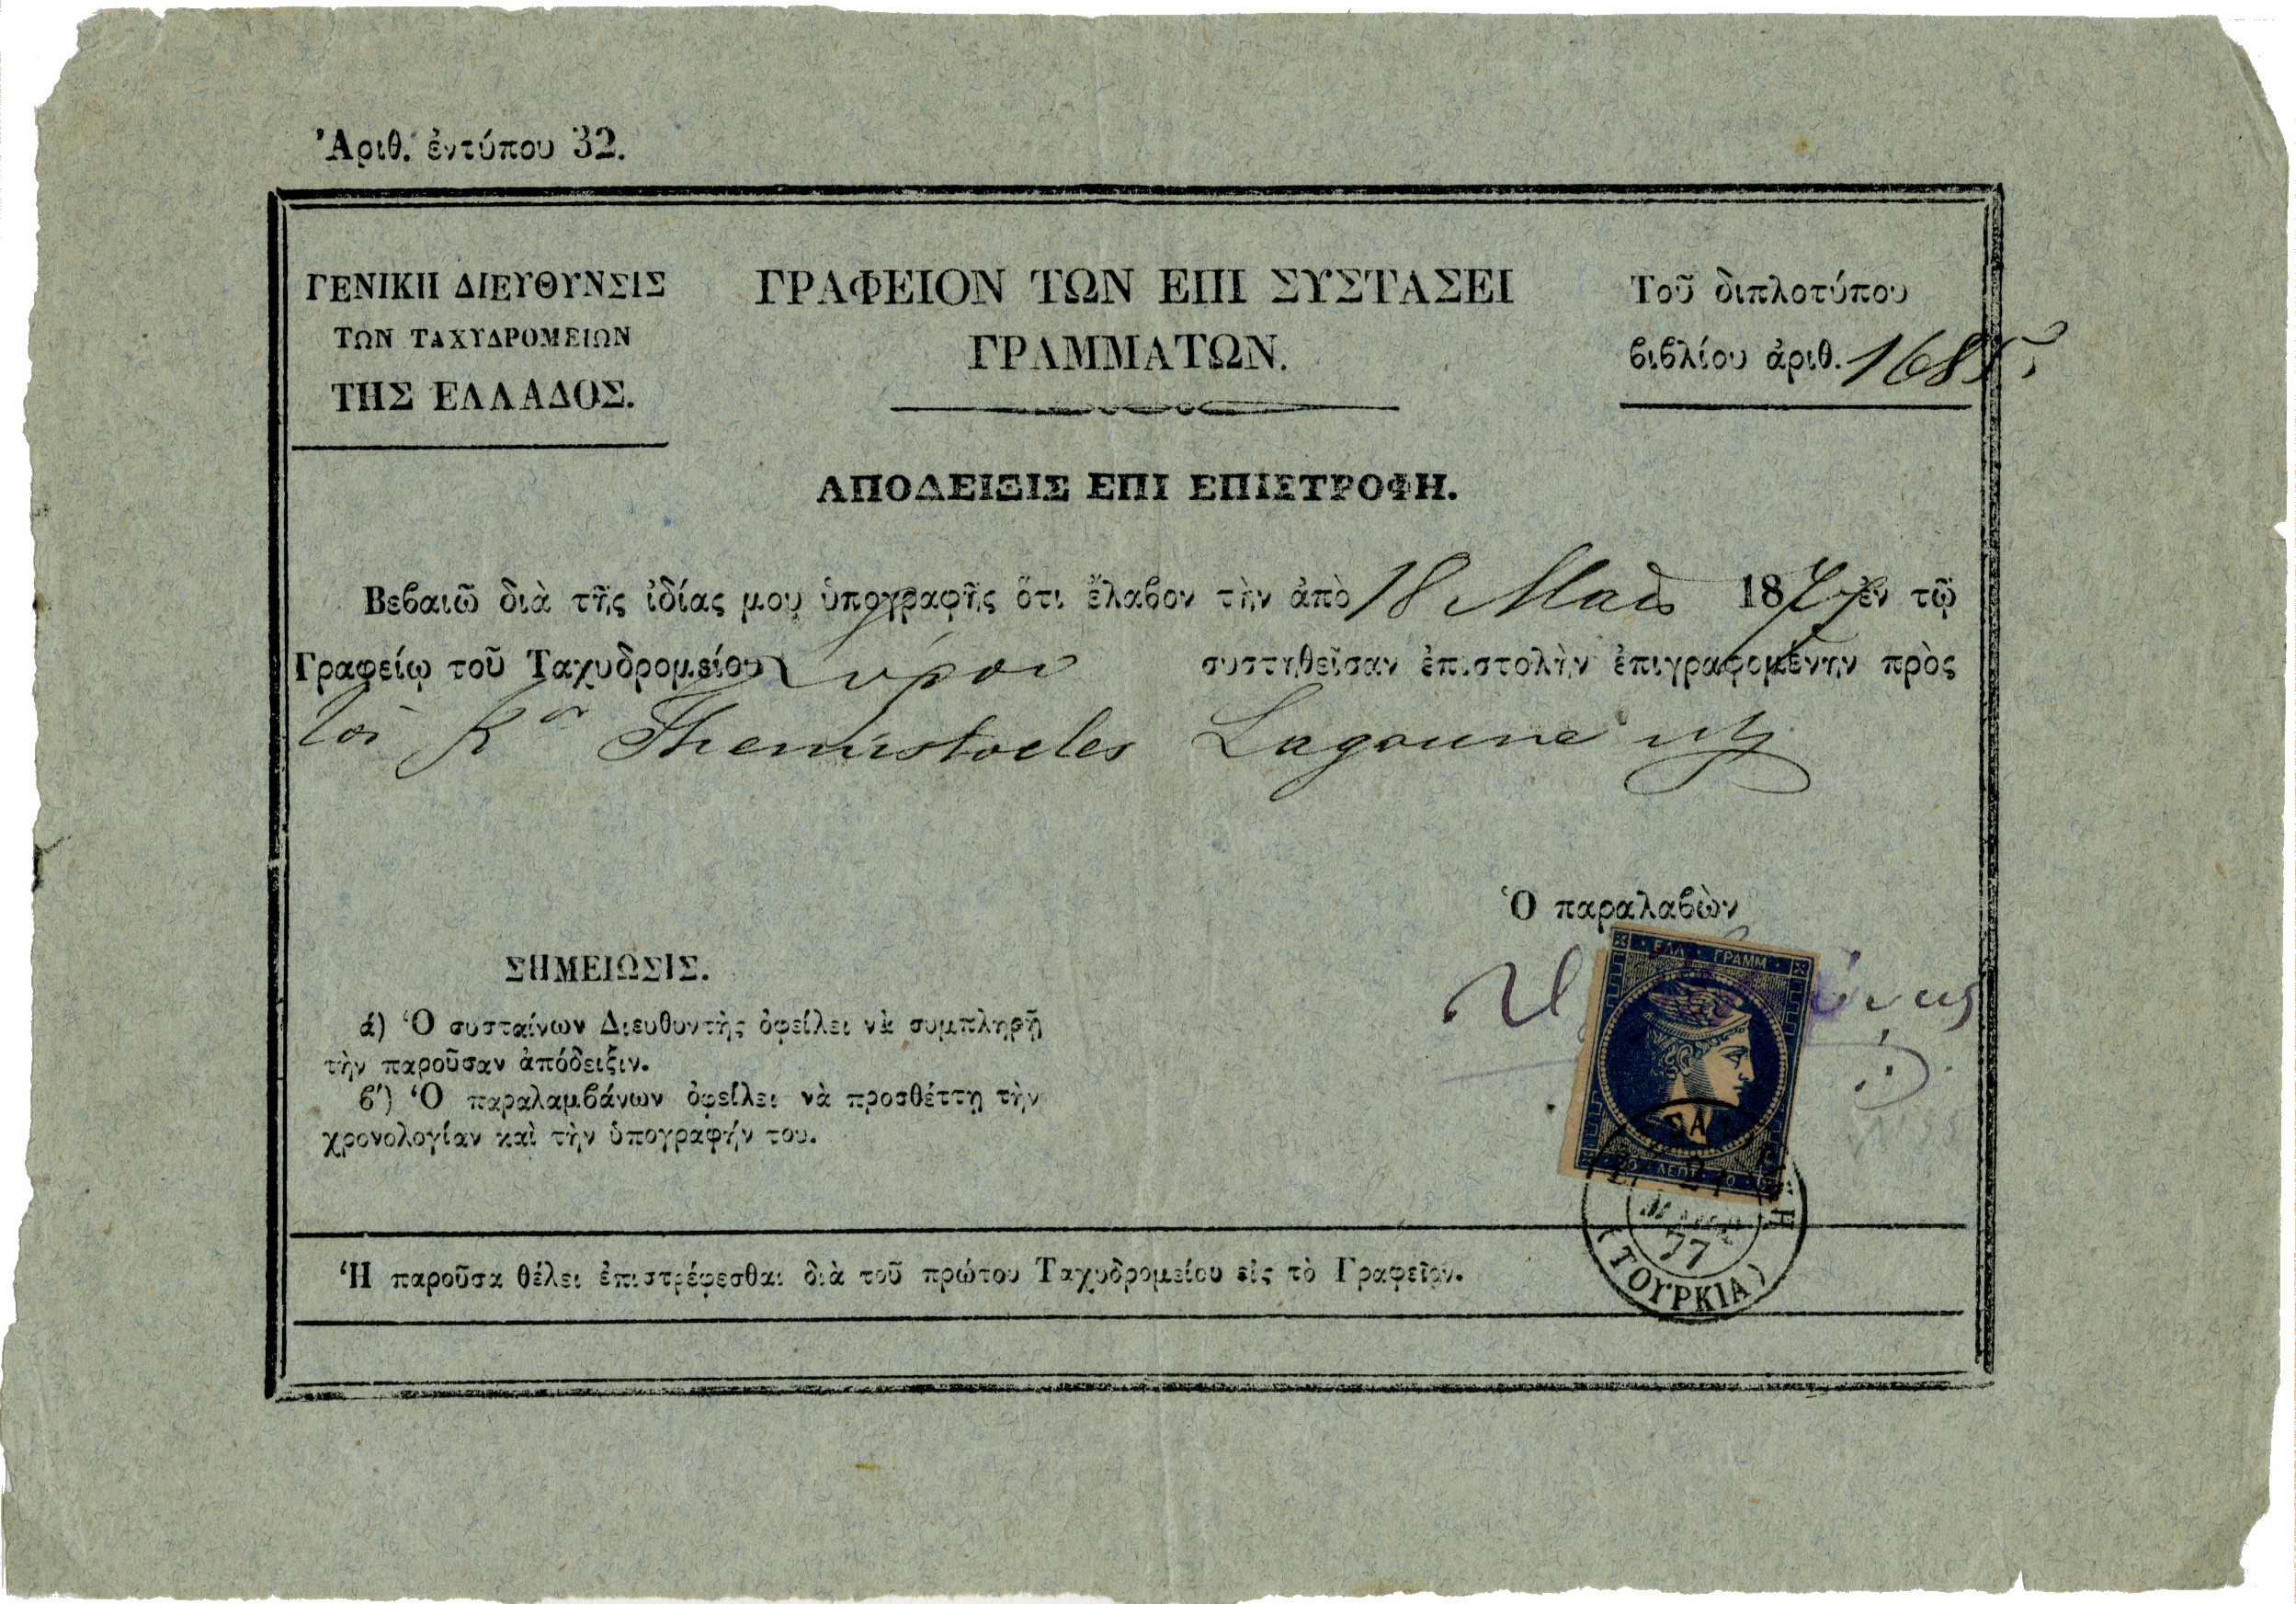 Ἀριθ. ἐντύπου 32.
ΓΕΝΙΚΗ ΔΙΕΥΘΥΝΣΙΣ
ΤΩΝ ΤΑΧΥΔΡΟΜΕΙΩΝ
ΤΗΣ ΕΛΛΑΔΟΣ.
ΓΡΑΦΕΙΟΝ ΤΩΝ ΕΠΙ ΣΥΣΤΑΣΕΙ
ΓΡΑΜΜΑΤΩΝ.
Τοῦ διπλοτύπου
βιβλίου ἀριθ. 1685
ΑΠΟΔΕΙΞΙΣ ΕΠΙ ΕΠΙΣΤΡΟΦΗ.
Βεβαιῶ διὰ τῆς ἰδίας μου ὑπογραφῆς ὅτι ἔλαβον τὴν ἀπὸ 18 Μαΐου 1877 ἐν τῷ
Γραφείῳ τοῦ Ταχυδρομείου Σύρου συστηθεῖσαν ἐπιστολὴν ἐπιγραφομένην πρὸς
τὸν Κον Themistocles
Ὁ παραλαβὼν
ΕΛΛ · ΓΡΑΜΜ
20 · ΛΕΠΤ · 20
21
77
(ΤΟΥΡΚΙΑ)
ΣΗΜΕΙΩΣΙΣ.
ά) Ὁ συσταίνων Διευθυντὴς ὀφείλει νὰ συμπληρῇ
τὴν παροῦσαν ἀπόδειξιν.
β') Ὁ παραλαμβάνων ὀφείλει νὰ προσθέττῃ τὴν
χρονολογίαν καὶ τὴν ὑπογραφήν του.
Ἡ παροῦσα θέλει ἐπιστρέφεσθαι διὰ τοῦ πρώτου Ταχυδρομείου εἰς τὸ Γραφεῖον.